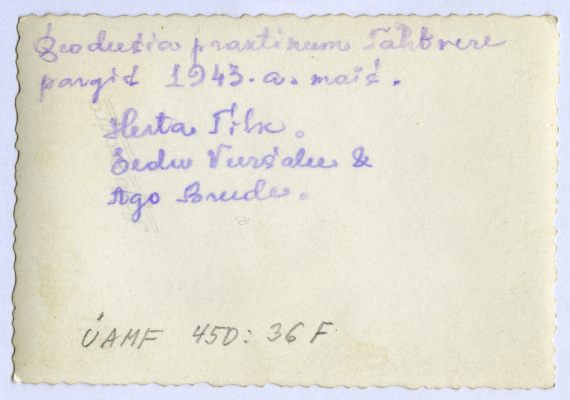 Geodesia praktikum Tähtvere
pargis 1943. a. mais.
Herta Tilk.
Ledu Vursalu &
Ago Brude.
ÜAMF 450:36 F